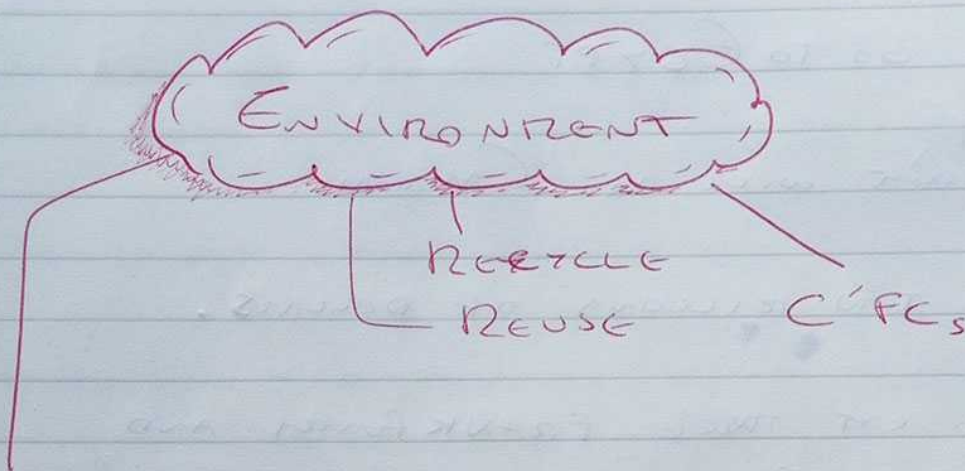 ENVIRONMENT
RECYCLE
REUSE
C'FCs